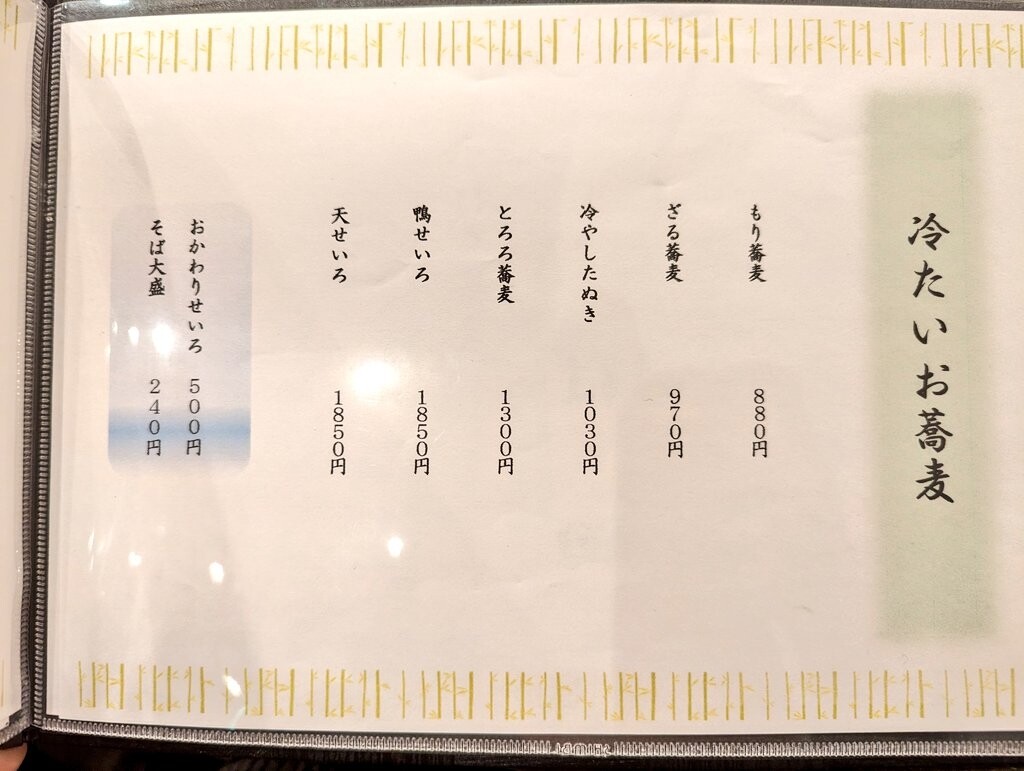 冷たいお蕎麦
もり蕎麦 880円
ざる蕎麦 970円
冷やしたぬき 1030円
とろろ蕎麦 1300円
鴨せいろ 1850円
天せいろ 1850円
おかわりせいろ 500円
そば大盛 240円